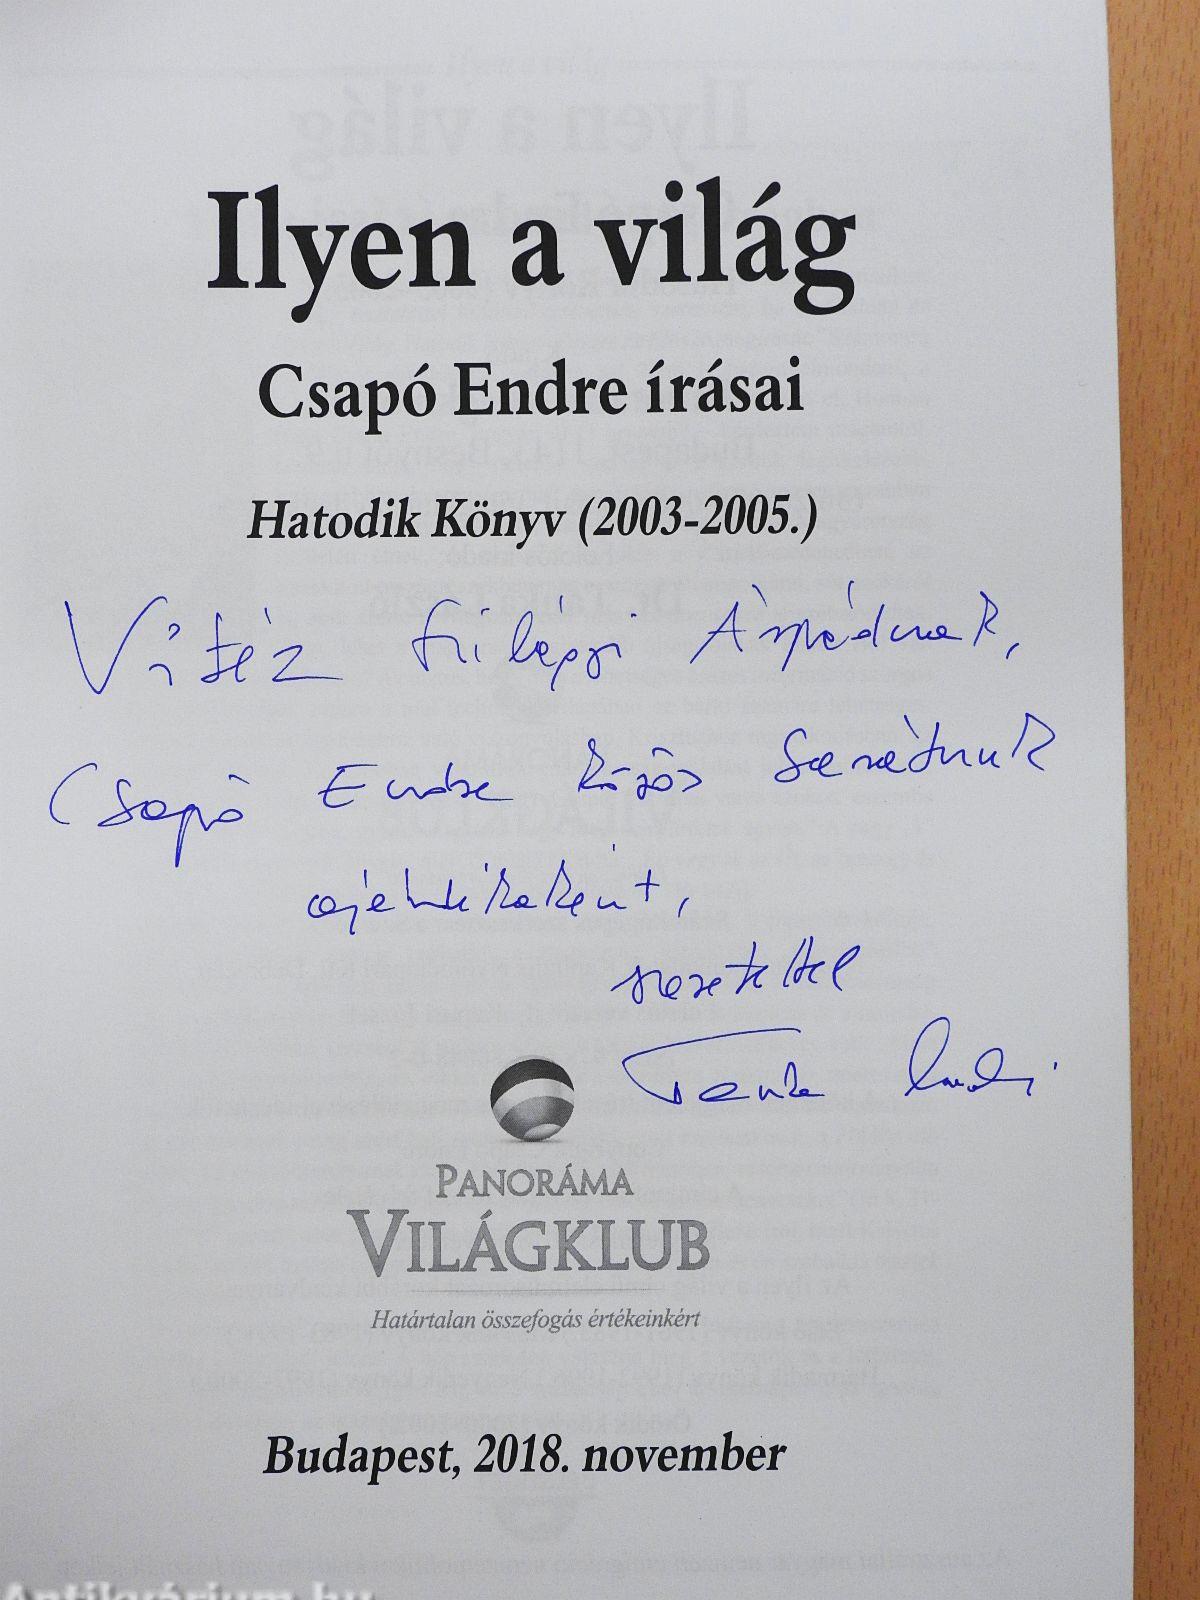 Ilyen a világ
Csapó Endre írásai
Hatodik Könyv (2003-2005.)
Vitéz Fülöppi Árpádnak,
Csapó Endre közös barátunk
ajándékaként,
szeretettel
PANORÁMA
VILÁGKLUB
Határtalan összefogás értékeinkért
Budapest, 2018. november
Antikvárium.hu